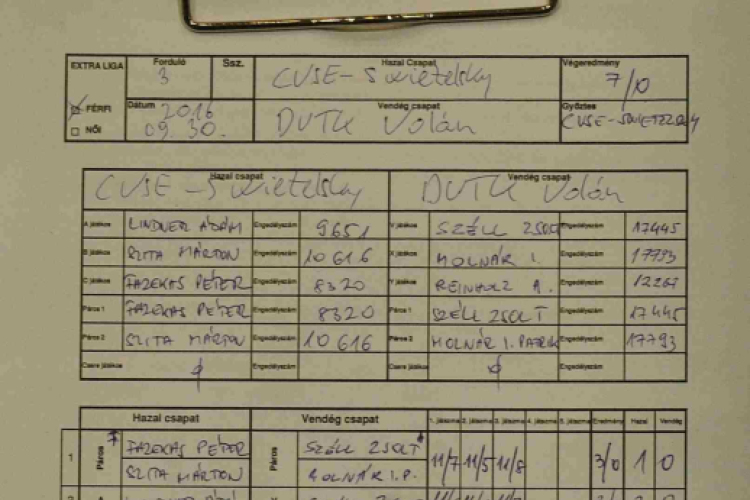 EXTRA LIGA Forduló 3 Ssz. Hazai Csapat CVSE-Swietelsky Végeredmény 7/0
FÉRFI Dátum 2016 09.30. Vendég csapat DVTK Volán Győztes CVSE-SWIETELSKY
NŐI
Hazai csapat CVSE-Swietelsky Vendég csapat DVTK Volán
A játékos LINDNER ÁDÁM Engedélyszám 9651 V játékos SZÉLL ZSOLT Engedélyszám 17445
B játékos SZITA MÁRTON Engedélyszám 10616 X játékos MOLNÁR I. Engedélyszám 17793
C játékos FAZEKAS PÉTER Engedélyszám 8320 Y játékos REINHOLZ A. Engedélyszám 12267
Páros 1 FAZEKAS PÉTER Engedélyszám 8320 Páros 1 SZÉLL ZSOLT Engedélyszám 17445
Páros 2 SZITA MÁRTON Engedélyszám 10616 Páros 2 MOLNÁR I. PATRIK Engedélyszám 17793
Csere játékos Engedélyszám Csere játékos Engedélyszám
Hazai csapat Vendég csapat 1. játszma 2. játszma 3. játszma 4. játszma 5. játszma Eredmény Hazai Vendég
1 Páros FAZEKAS PÉTER Páros SZÉLL ZSOLT 11/7 11/5 11/8 3/0 1 0
SZITA MÁRTON MOLNÁR I.P.